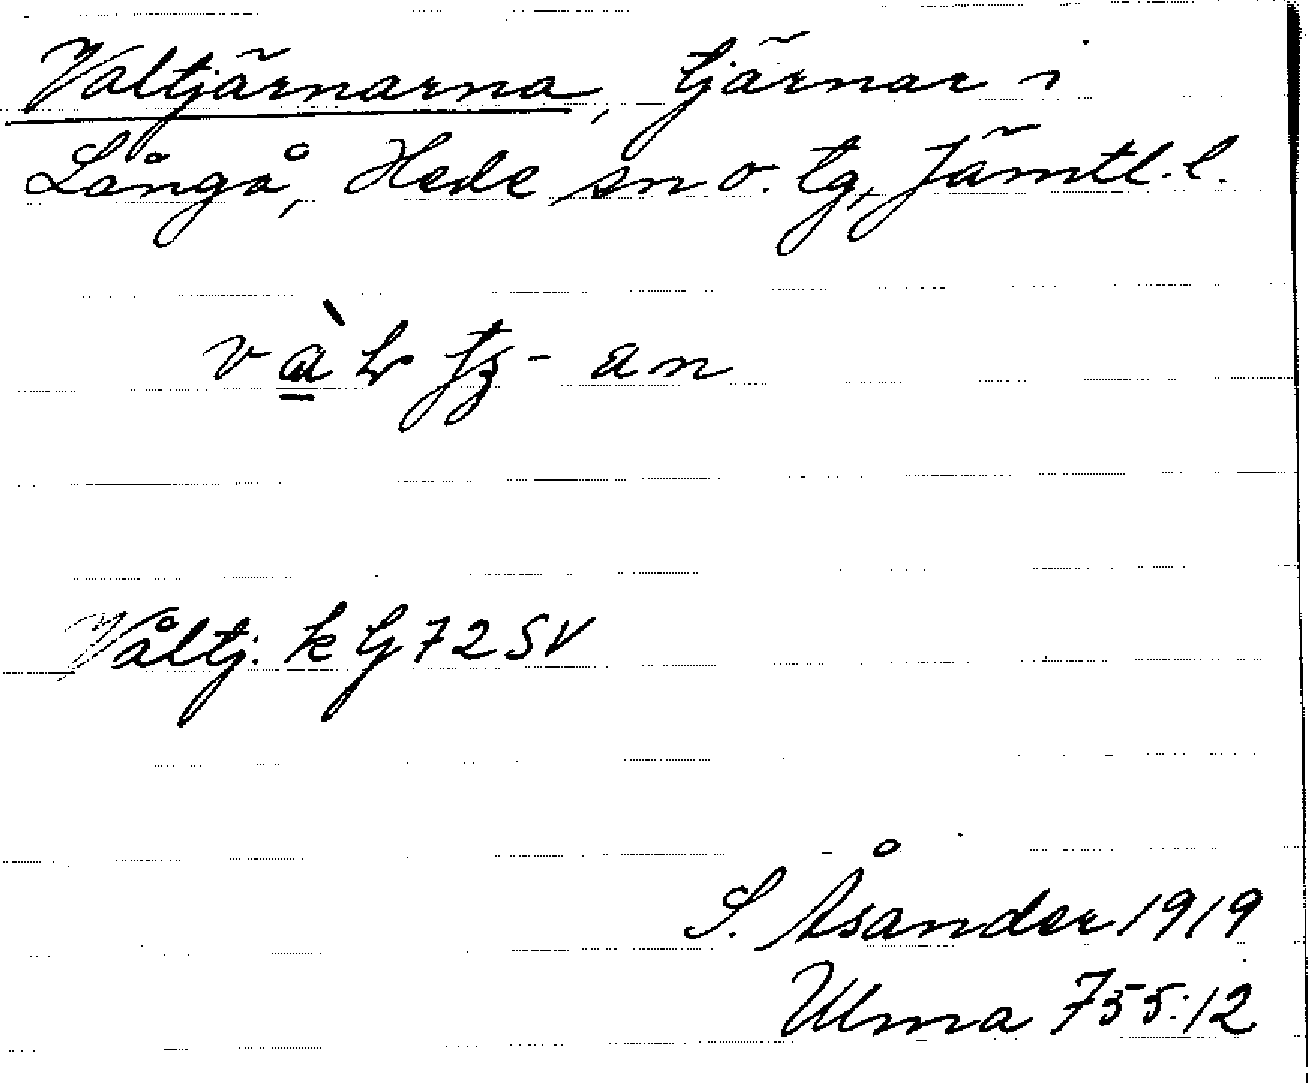 Valtjärnarna, tjärnar i
Långå, Hede sn o. tg, Jämtl. l.
Våltj. k Gj 72 SV
S. Åsander 1919
Ulma 755:12